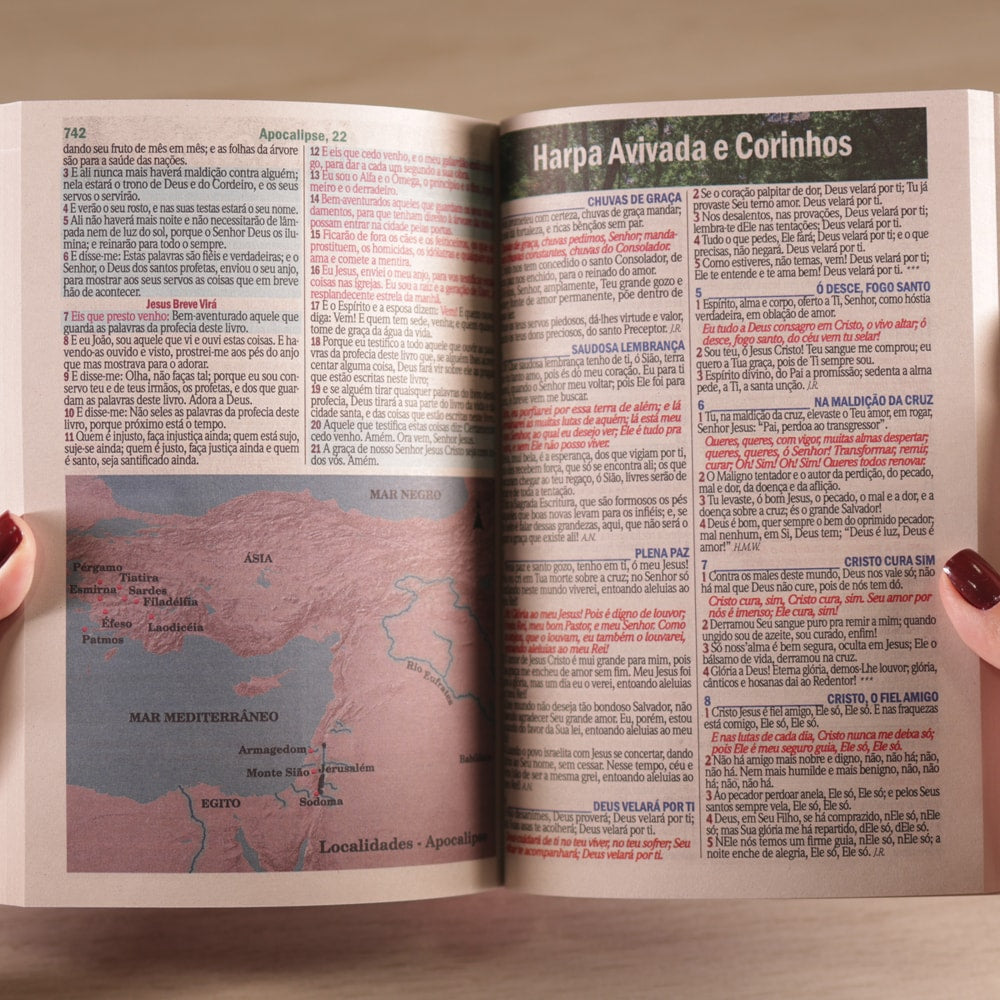 742
Apocalipse, 22
dando seu fruto de mês em mês; e as folhas da árvore
são para a saúde das nações.
3 E ali nunca mais haverá maldição contra alguém;
nela estará o trono de Deus e do Cordeiro, e os seus
servos o servirão.
4 E verão o seu rosto, e nas suas testas estará o seu nome.
5 Ali não haverá mais noite e não necessitarão de lâm-
pada nem de luz do sol, porque o Senhor Deus os ilu-
mina; e reinarão para todo o sempre.
6 E disse-me: Estas palavras são fiéis e verdadeiras; e o
Senhor, o Deus dos santos profetas, enviou o seu anjo,
para mostrar aos seus servos as coisas que em breve
hão de acontecer.
Jesus Breve Virá
7 Eis que presto venho: Bem-aventurado aquele que
guarda as palavras da profecia deste livro.
8 E eu João, sou aquele que vi e ouvi estas coisas. E ha-
vendo-as ouvido e visto, prostrei-me aos pés do anjo
que mas mostrava para o adorar.
9 E disse-me: Olha, não faças tal; porque eu sou con-
servo teu e de teus irmãos, os profetas, e dos que guar-
dam as palavras deste livro. Adora a Deus.
10 E disse-me: Não seles as palavras da profecia deste
livro, porque próximo está o tempo.
11 Quem é injusto, faça injustiça ainda; quem está sujo,
suje-se ainda; quem é justo, faça justiça ainda e quem
é santo, seja santificado ainda.
12 E eis que cedo venho, e o meu galardão
go, para dar a cada um segundo a sua obra.
13 Eu sou o Alfa e o Ômega, o princípio e o fim, o
meiro e o derradeiro.
14 Bem-aventurados aqueles que guardam os seus
damentos, para que tenham direito à árvore da
possam entrar na cidade pelas portas.
15 Ficarão de fora os cães e os feiticeiros, os que se
prostituem, os homicidas, os idólatras e qualquer
ama e comete a mentira.
16 Eu Jesus, enviei o meu anjo, para vos testificar
coisas nas igrejas. Eu sou a raiz e a geração de Davi,
resplandecente estrela da manhã.
17 E o Espírito e a esposa dizem: Vem! E quem
diga: Vem! E quem tem sede, venha; e quem quiser
tome de graça da água da vida.
18 Porque eu testifico a todo aquele que ouvir as
vras da profecia deste livro que, se alguém lhes acres-
centar alguma coisa, Deus fará vir sobre ele as pragas
que estão escritas neste livro;
19 e se alguém tirar quaisquer palavras do livro desta
profecia, Deus tirará a sua parte do livro da vida e da
cidade santa, e das coisas que estão escritas neste livro.
20 Aquele que testifica estas coisas diz: Certamente
cedo venho. Amém. Ora vem, Senhor Jesus.
21 A graça de nosso Senhor Jesus Cristo seja com
dos vós. Amém.
MAR NEGRO
ÁSIA
Pérgamo
Tiatira
Esmirna
Sardes
Filadélfia
Éfeso
Laodicéia
Patmos
Rio Eufrates
MAR MEDITERRÂNEO
Armagedom
Monte Sião
Jerusalém
EGITO
Sodoma
Localidades - Apocalipse
Harpa Avivada e Corinhos
CHUVAS DE GRAÇA
com certeza, chuvas de graça mandar;
fortaleza, e ricas bênçãos sem par.
de graça, chuvas pedimos, Senhor; manda-
constantes, chuvas do Consolador.
nos tem concedido o santo Consolador, de
nos enchido, para o reinado do amor.
Senhor, amplamente, Teu grande gozo e
fonte de amor permanente, põe dentro de
teus servos piedosos, dá-lhes virtude e valor,
teus dons preciosos, do santo Preceptor. J.R.
SAUDOSA LEMBRANÇA
saudosa lembrança tenho de ti, ó Sião, terra
amo, pois és do meu coração. Eu para ti
quando o Senhor meu voltar; pois Ele foi para
breve vem me buscar.
porfiarei por essa terra de além; e lá
as muitas lutas de aquém; lá está meu
Senhor, ao qual eu desejo ver; Ele é tudo pra
sem Ele não posso viver.
bela, é a esperança, dos que vigiam por ti,
recebem força, que só se encontra ali; os que
chegar ao teu regaço, ó Sião, livres serão de
toda a tentação.
Sagrada Escritura, que são formosos os pés
boas novas levam para os infiéis; e, se
falar dessas grandezas, aqui, que não será o
graça que existe ali! A.N.
PLENA PAZ
paz e santo gozo, tenho em ti, ó meu Jesus!
em Tua morte sobre a cruz; no Senhor só
neste mundo viverei, entoando aleluias
Glória ao meu Jesus! Pois é digno de louvor;
Rei, meu bom Pastor, e meu Senhor. Como
que o louvam, eu também o louvarei,
aleluias ao meu Rei!
amor de Jesus Cristo é mui grande para mim, pois
graça me encheu de amor sem fim. Meu Jesus foi
glória, mas um dia eu o verei, entoando aleluias
mundo não deseja tão bondoso Salvador, não
agradecer Seu grande amor. Eu, porém, estou
do favor da Sua lei, entoando aleluias ao meu
o povo israelita com Jesus se concertar, dando
Seu nome, sem cessar. Nesse tempo, céu e
de ser a mesma grei, entoando aleluias ao
A.N.
DEUS VELARÁ POR TI
desanimes, Deus proverá; Deus velará por ti;
asas te acolherá; Deus velará por ti.
cuidará de ti no teu viver, no teu sofrer; Seu
te acompanhará; Deus velará por ti.
2 Se o coração palpitar de dor, Deus velará por ti; Tu já
provaste Seu terno amor. Deus velará por ti.
3 Nos desalentos, nas provações, Deus velará por ti;
lembra-te dEle nas tentações; Deus velará por ti.
4 Tudo o que pedes, Ele fará; Deus velará por ti; e o que
precisas, não negará. Deus velará por ti.
5 Como estiveres, não temas, vem! Deus velará por ti;
Ele te entende e te ama bem! Deus velará por ti. ***
5 Ó DESCE, FOGO SANTO
1 Espírito, alma e corpo, oferto a Ti, Senhor, como hóstia
verdadeira, em oblação de amor.
Eu tudo a Deus consagro em Cristo, o vivo altar; ó
desce, fogo santo, do céu vem tu selar!
2 Sou teu, ó Jesus Cristo! Teu sangue me comprou; eu
quero a Tua graça, pois de Ti sempre sou.
3 Espírito divino, do Pai a promissão; sedenta a alma
pede, a Ti, a santa unção. J.R.
6 NA MALDIÇÃO DA CRUZ
1 Tu, na maldição da cruz, elevaste o Teu amor, em rogar,
Senhor Jesus: “Pai, perdoa ao transgressor”.
Queres, queres, com vigor, muitas almas despertar;
queres, queres, ó Senhor! Transformar, remir,
curar; Oh! Sim! Oh! Sim! Queres todos renovar.
2 O Maligno tentador e o autor da perdição, do pecado,
mal e dor, da doença e da aflição.
3 Tu levaste, ó bom Jesus, o pecado, o mal e a dor, e a
doença sobre a cruz; és o grande Salvador!
4 Deus é bom, quer sempre o bem do oprimido pecador;
mal nenhum, em Si, Deus tem; “Deus é luz, Deus é
amor!” H.M.W.
7 CRISTO CURA SIM
1 Contra os males deste mundo, Deus nos vale só; não
há mal que Deus não cure, pois de nós tem dó.
Cristo cura, sim, Cristo cura, sim. Seu amor por
nós é imenso; Ele cura, sim!
2 Derramou Seu sangue puro pra remir a mim; quando
ungido sou de azeite, sou curado, enfim!
3 Só noss'alma é bem segura, oculta em Jesus; Ele o
bálsamo de vida, derramou na cruz.
4 Glória a Deus! Eterna glória, demos-Lhe louvor; glória,
cânticos e hosanas dai ao Redentor! ***
8 CRISTO, O FIEL AMIGO
1 Cristo Jesus é fiel amigo, Ele só, Ele só. E nas fraquezas
está comigo, Ele só, Ele só.
E nas lutas de cada dia, Cristo nunca me deixa só;
pois Ele é meu seguro guia, Ele só, Ele só.
2 Não há amigo mais nobre e digno, não, não há; não,
não há. Nem mais humilde e mais benigno, não, não
há; não, não há.
3 Ao pecador perdoar anela, Ele só, Ele só; e pelos Seus
santos sempre vela, Ele só, Ele só.
4 Deus, em Seu Filho, se há comprazido, nEle só, nEle
só; mas Sua glória me há repartido, dEle só, dEle só.
5 NEle nós temos um firme guia, nEle só, nEle só; a
noite enche de alegria, Ele só, Ele só. J.R.